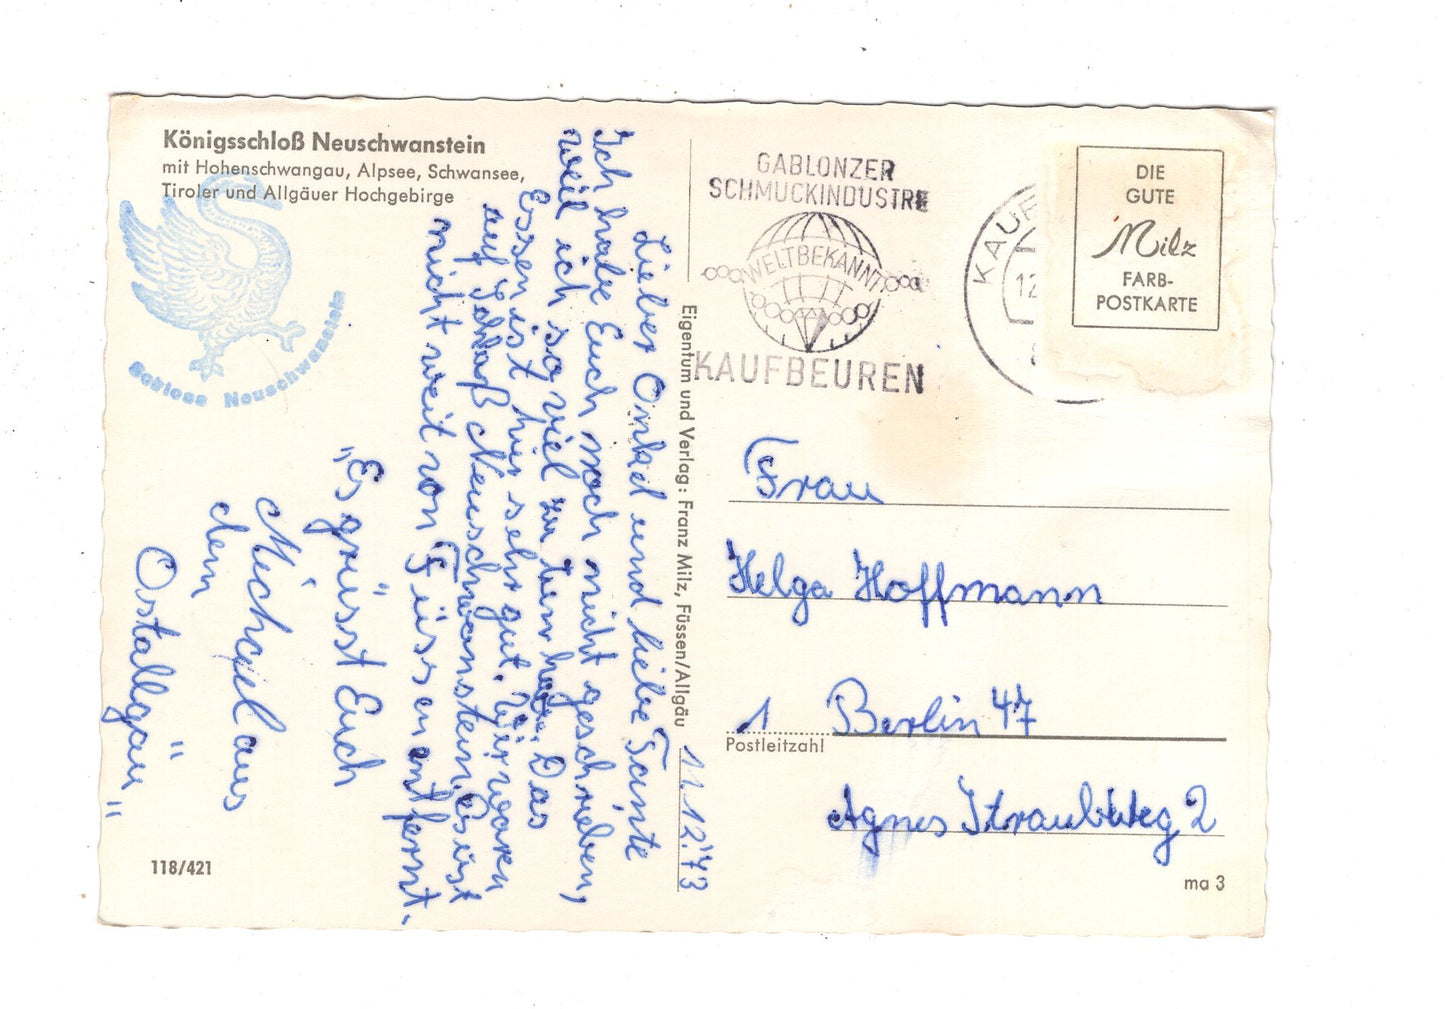 Königsschloß Neuschwanstein
mit Hohenschwangau, Alpsee, Schwansee,
Tiroler und Allgäuer Hochgebirge
Schloss Neuschwanstein
11.12.73
Lieber Onkel und liebe Tante
Ich habe Euch noch nicht geschrieben,
weil ich so viel zu tun habe. Das
Essen ist hier sehr gut. Wir waren
auf Schloß Neuschwanstein. Es ist
nicht weit von Füssen entfernt.
"Es grüsst Euch
Michael aus
dem
"Ostallgäu"
118/421
Eigentum und Verlag: Franz Milz, Füssen/Allgäu
GABLONZER
SCHMUCKINDUSTRIE
WELTBEKANNT
KAUFBEUREN
KAUF
12
DIE
GUTE
Milz
FARB-
POSTKARTE
Frau
Helga Hoffmann
1 Berlin 47
Postleitzahl
Agnes Straub Weg 2
ma 3